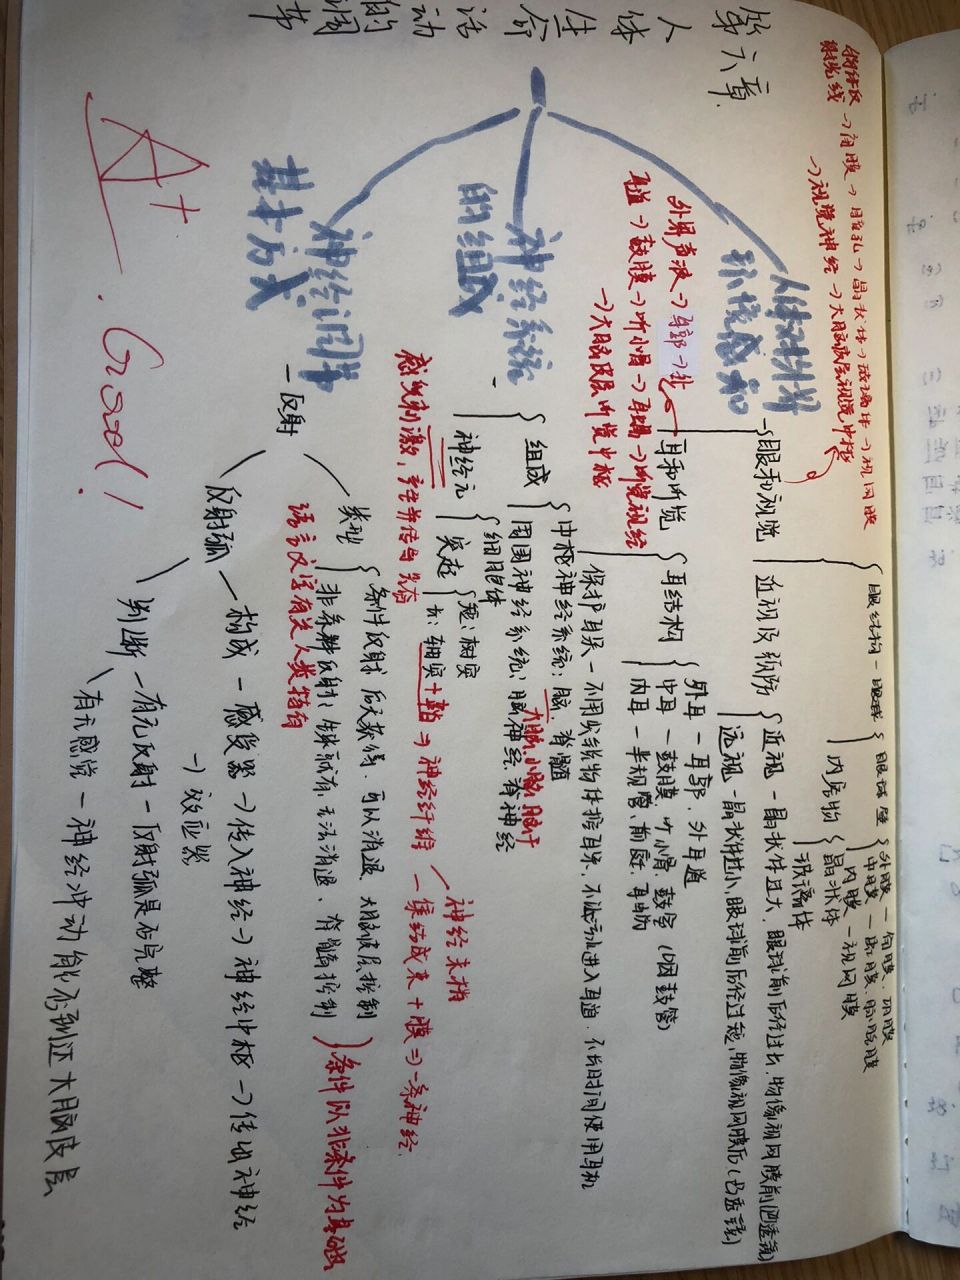 第六章
人体生命活动的调节
人体对外界
环境感知
物体反
射光线→角膜→瞳孔→晶状体→玻璃体→视网膜
→视觉神经→大脑皮层视觉中枢
眼和视觉
眼结构一眼球
眼球壁
外膜一角膜、巩膜
中膜一虹膜、脉络膜
内膜一视网膜
内容物
晶状体
玻璃体
近视及预防
近视一晶状体过大,眼球前后径过长,物像视网膜前(凹透镜)
远视一晶状体过小,眼球前后径过短,物像视网膜后(凸透镜)
外界声波→耳郭→外
耳道→鼓膜→听小骨→耳蜗→听觉神经
→大脑皮层听觉中枢
耳和听觉
耳结构
外耳一耳郭、外耳道
中耳一鼓膜、听小骨、鼓室(咽鼓管)
内耳一半规管、前庭、耳蜗
保护耳朵一不用尖锐物体挖耳朵,不让污水进入耳道,不长时间使用耳机
神经系统
的组成
组成
中枢神经系统:脑、脊髓
大脑、小脑、脑干
周围神经系统:脑神经、脊神经
神经元
细胞体
突起
短:树突
长:轴突+鞘→神经纤维一集结成束+膜⇒一条神经
神经末梢
感受刺激,产生并传导兴奋
神经调节
基本方式
一反射
类型
条件反射:后天获得,可以消退,大脑皮层控制
非条件反射:生来就有,无法消退,脊髓控制
条件以非条件为基础
语言文字有关人类特有
反射弧一构成一感受器→传入神经→神经中枢→传出神经
→效应器
判断一有无反射一反射弧是否完整
有无感觉一神经冲动能否到达大脑皮层
A+
Good!